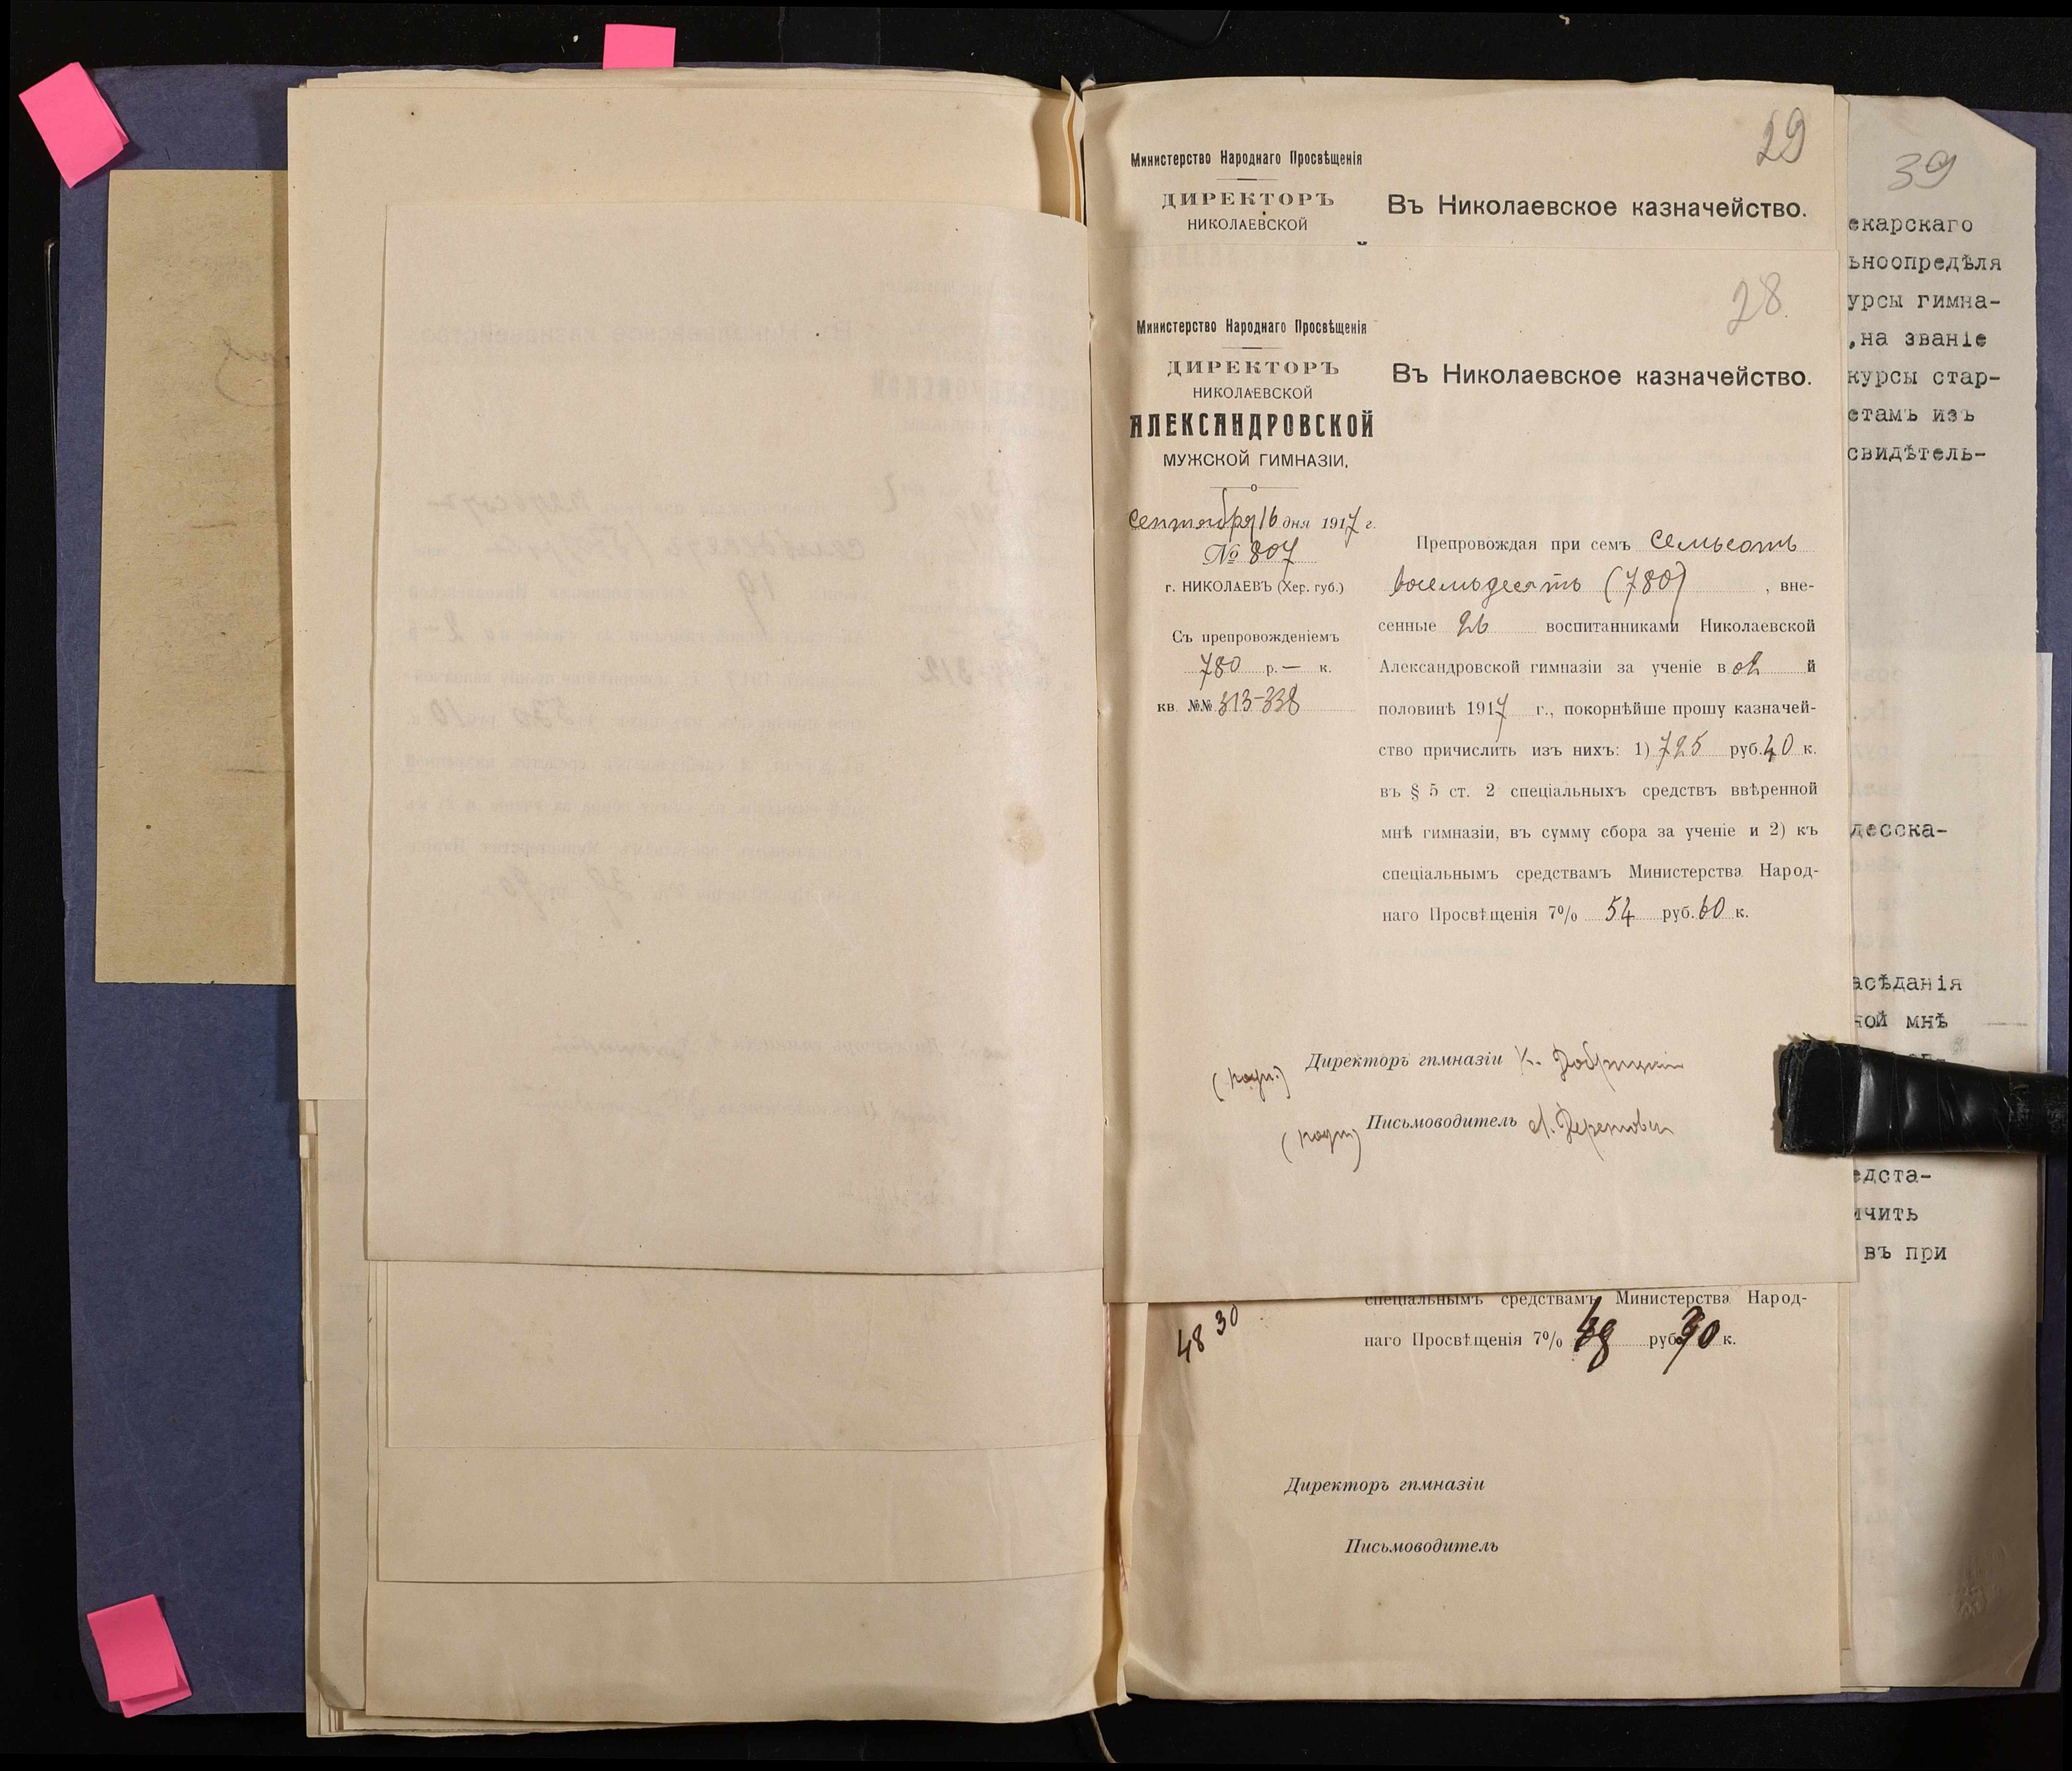 29
Министерство Народнаго Просвѣщенія
ДИРЕКТОРЪ
НИКОЛАЕВСКОЙ
Въ Николаевское казначейство.
28.
Министерство Народнаго Просвѣщенія
ДИРЕКТОРЪ
НИКОЛАЕВСКОЙ
АЛЕКСАНДРОВСКОЙ
МУЖСКОЙ ГИМНАЗІИ,
Сентября 16 дня 1917 г.
№ 807
г. НИКОЛАЕВЪ (Хер. губ.)
Съ препровожденіемъ
780 р. — к.
кв. №№ 313-338
Въ Николаевское казначейство.
Препровождая при семъ семьсотъ
восемьдесятъ (780) , вне-
сенные 26 воспитанниками Николаевской
Александровской гимназіи за ученіе в й
половинѣ 1917 г., покорнѣйше прошу казначей-
ство причислить изъ нихъ: 1) 725 руб. 40 к.
въ § 5 ст. 2 спеціальныхъ средствъ ввѣренной
мнѣ гимназіи, въ сумму сбора за ученіе и 2) къ
спеціальнымъ средствамъ Министерства Народ-
наго Просвѣщенія 7% 54 руб. 60 к.
(подп.) Директоръ гимназіи
(подп) Письмоводитель
спеціальнымъ средствамъ Министерства Народ-
48 30
наго Просвѣщенія 7% руб. к.
Директоръ гимназіи
Письмоводитель
39
екарскаго
ьноопредѣля
урсы гимна-
,на званіе
курсы стар-
етамъ изъ
свидѣтель-
десска-
асѣданія
ной мнѣ
едста-
ичить
въ при